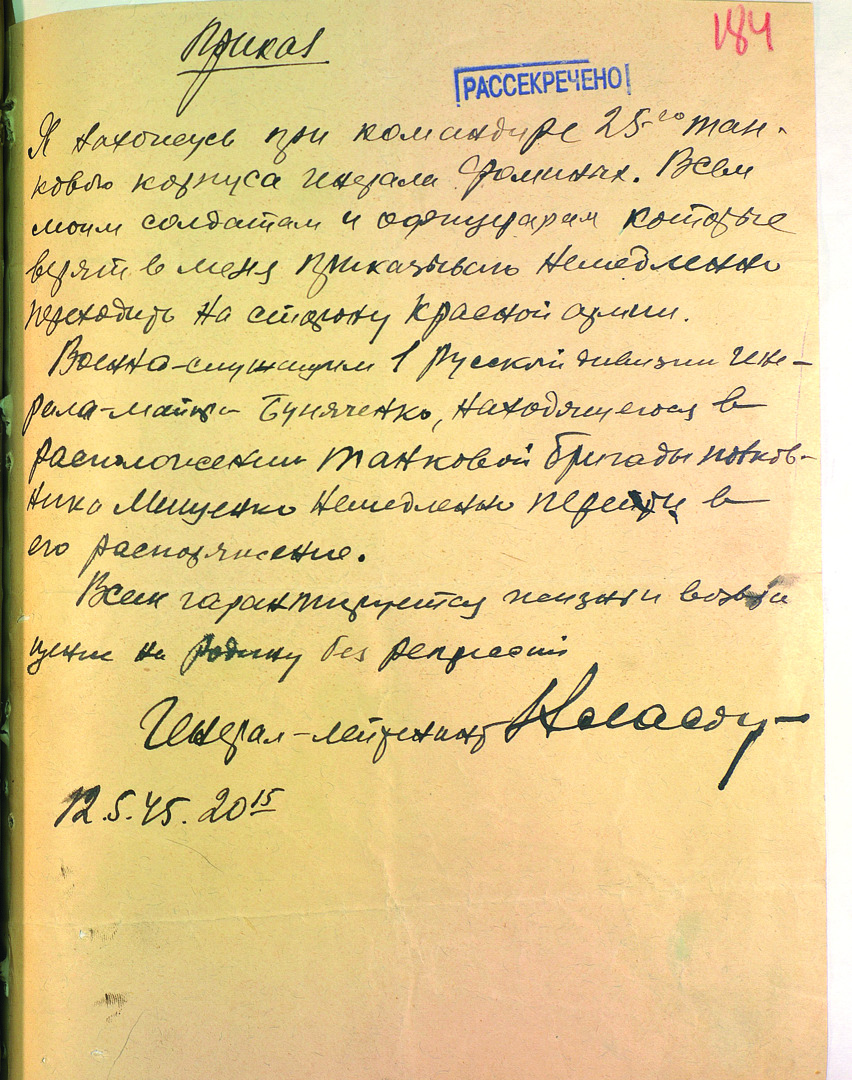 Приказ
184
РАССЕКРЕЧЕНО
Я нахожусь при командире 25-го тан-
кового корпуса генерала Фоминых. Всем
моим солдатам и офицерам которые
верят в меня приказываю немедленно
переходить на сторону Красной армии.
Военно-служащим 1 русской дивизии ген-
рала-майора Буняченко, находящегося в
расположении танковой бригады полков-
ника Мищенко немедленно перейти в
его распоряжение.
Всем гарантируется жизнь и возвра
щение на родину без репрессий
Генерал-лейтенант Власов
12.5.45. 20 15